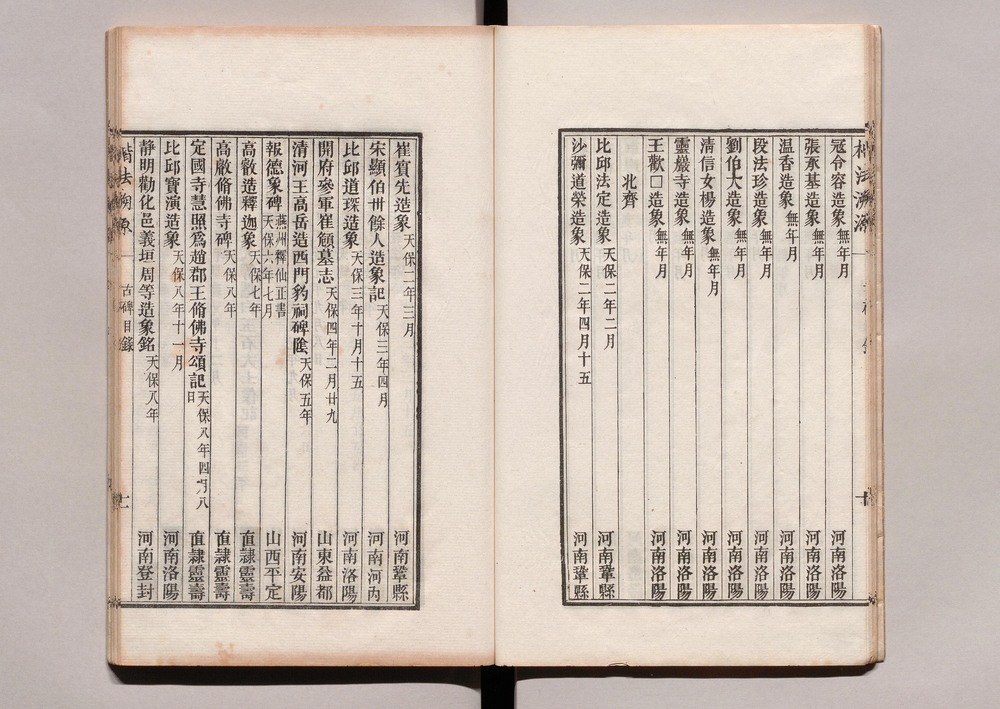 楷法溯源
冠令容造象 無年月 河南洛陽
張永基造象 無年月 河南洛陽
温香造象 無年月 河南洛陽
段法珍造象 無年月 河南洛陽
劉伯大造象 無年月 河南洛陽
清信女楊造象 無年月 河南洛陽
靈巖寺造象 無年月 河南洛陽
王歡□造象 無年月 河南洛陽
北齊
比邱法定造象 天保二年二月 河南鞏縣
沙彌道榮造象 天保二年四月十五 河南鞏縣
崔賓先造象 天保二年三月 河南鞏縣
宋顯伯卌餘人造象記 天保三年四月 河南河內
比邱道琛造象 天保三年十月十五 河南洛陽
開府參軍崔頠墓志 天保四年二月廿九 山東益都
清河王高岳造西門豹祠碑陰 天保五年 河南安陽
報德象碑 燕州釋仙正書 天保六年七月 山西平定
高叡造釋迦象 天保七年 直隸靈壽
高叡脩佛寺碑 天保八年 直隸靈壽
定國寺慧照爲趙郡王脩佛寺頌記 天保八年四月八日 直隸靈壽
比邱寶演造象 天保八年十一月 河南洛陽
靜明勸化邑義垣周等造象銘 天保八年 河南登封
楷法溯原 古碑目錄